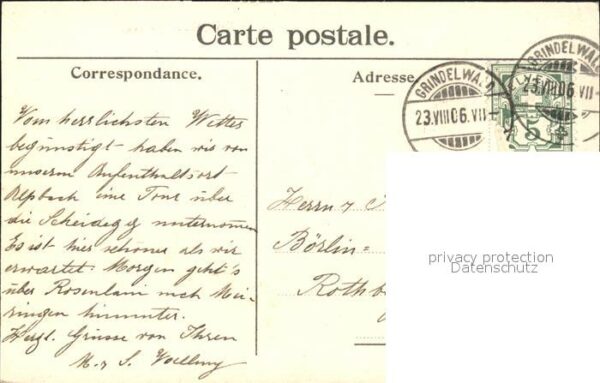 Carte postale.
Correspondance.
Adresse
GRINDELWALD
23.VIII06.VII-
GRINDELWALD
23.VIII06.VII-
5
Vom herrlichsten Wetter
begünstigt haben wir von
unserem Aufenthaltsort
Alpbach eine Tour über
die Scheidegg unternommen
Es ist hier schöner als wir
erwartet. Morgen geht's
über Rosenlaui nach Mei-
ringen hinunter.
Herzl. Grüsse von Ihren
M. & S.
Herrn &
Börlin=
Rothb
privacy protection
Datenschutz